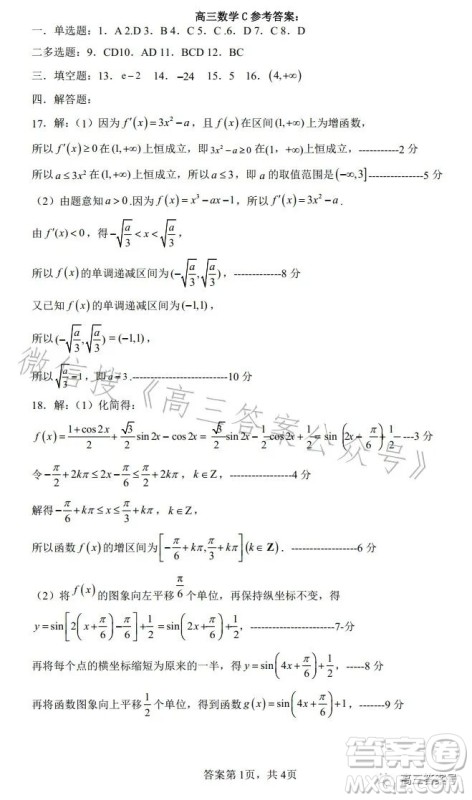 高三数学C参考答案：
一．单选题：1．A 2.D 3．A 4．C 5．C 6．D 7．C 8．D
二多选题：9．CD10．AD 11．BCD 12．BC
三．填空题：13． e−2 14． −24 15．5 16．(4,+∞)
四．解答题：
17．解：（1）因为 f′(x)=3x²−a，且 f(x) 在区间(1,+∞)上为增函数，
所以 f′(x)≥0 在(1,+∞)上恒成立，即3x²−a≥0 在(1，+∞)上恒成立，-----------2 分
所以 a≤3x² 在(1,+∞)上恒成立，所以 a≤3，即 a 的取值范围是(−∞,3]---------------5 分
（2）由题意知 a>0.因为 f(x)=x³−ax−1，所以 f′(x)=3x²−a．
由 f′(x)<0，得 −√(a/3)<x<√(a/3)，
所以 f(x) 的单调递减区间为(−√(a/3),√(a/3))，-------------8 分
又已知 f(x) 的单调递减区间为(−1,1)，
所以(−√(a/3),√(a/3))=(−1,1)，
所以√(a/3)=1，即a=3.--------------------------10 分
18．解：（1）化简得：
f(x)=(1+cos2x)/2+(√3/2)sin2x−cos2x=(√3/2)sin2x−(1/2)cos2x+1/2=sin(2x−π/6)+1/2．---3 分
令−π/2+2kπ≤2x−π/6≤π/2+2kπ，k∈Z，-----------------4 分
解得−π/6+kπ≤x≤π/3+kπ，k∈Z，
所以函数 f(x) 的增区间为[−π/6+kπ,π/3+kπ](k∈Z)．---------------6 分
（2）将 f(x) 的图象向左平移π/6个单位，再保持纵坐标不变，得
y=sin[2(x+π/6)−π/6]+1/2=sin(2x+π/6)+1/2，------------------------7-分
再将每个点的横坐标缩短为原来的一半，得 y=sin(4x+π/6)+1/2，-------8 分
再将函数图象向上平移1/2个单位，得到函数 g(x)=sin(4x+π/6)+1，-------9 分
答案第1页，共 4页
微信搜《高三答案公众号》
高三答案号